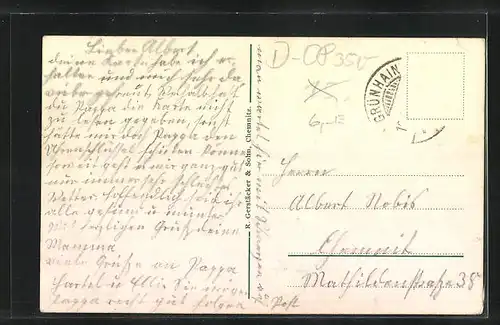 Lieber Albert
deine Karte habe ich er-
halten und mich sehr da
rüber gefreut. Weshalb hast
du Pappa die Karte nicht
zu lesen gegeben, sonst
hätte mir doch Pappa den
Uhrenschlüssel schicken können
sonst geht es mir ganz gut
nur immer sehr schlechtes
Wetter. hoffendlich seid ihr
alle gesund u munter
Mit herzlichen Gruß deine
Mamma
viele Grüße an Pappa
Hartel u Elli Sie mögen
Pappa recht gut folgen
R. Gerstäcker & Sohn, Chemnitz.
D-08350
6,-
GRÜNHAIN
Herrn
Albert Nobis
Chemnitz
Mathildenstraße 38
Post